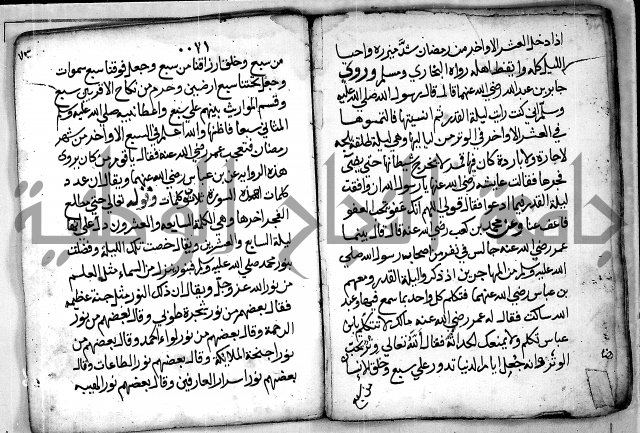 اذا دخل العشر الاواخر من رمضان شد مئزره واحيا
الليل كله وايقظ اهله رواه البخاري ومسلم وروي
جابر بن عبد الله رضي الله عنهما قال قال رسول الله صلي الله عليه
وسلم اني كنت رايت ليلة القدر ثم انسيتها فالتمسوها
في العشر الاواخر في الوتر من لياليها وهي ليلة طلقة بلجة
لا حارة ولا باردة كان فيها قمر لا يخرج شيطانها حتي يضي
فجرها فقالت عايشه رضي الله عنها يا رسول الله ان وافقت
ليلة القدر فيما ادعوا فقال قولي اللهم انك عفو تحب العفو
فاعف عنا وعن محمد بن كعب رضي الله عنه قال قال بينما
عمر رضي الله عنه جالس في نفر من اصحاب رسول الله صلي
الله عليه وسلم من المهاجرين اذ ذكروا ليلة القدر ومعهم
بن عباس رضي الله عنهما فتكلم كل واحد بما سمع فيها وعبد
الله ساكت فقال له عمر رضي الله عنه مالك لا تتكلم يا بن
عباس تكلم ولا يمنعك الحداثة فقال ان الله تعالي وتر يحب
الوتر وانه جعل ايام الدنيا تدور علي سبع وخلق الانسان
٠٠٧١
٧٣
من سبع وخلق ارزاقنا من سبع وجعل فوقنا سبع سموات
وجعل تحتنا سبع ارضين وحرم من نكاح الاقربين سبع
وقسم المواريث بينهم علي سبع واعطا نبيه صلي الله عليه وسلم
المثاني سبعا فاظنها والله اعلم في السبع الاواخر من شهر
رمضان فتعجب عمر رضي الله عنه فقال يا قوم من كان يروي
هذه الرواية عن بن عباس رضي الله عنهما ويقال ان عدد
كلمات السورة ثلاثون كلمات وقوله تعالي حتي مطلع
الفجر اخرها وهي الكلمة السابعة والعشرون دل علي انها
ليلة السابع والعشرين ويقال خصت تلك الليلة وفضلت
بنور محمد صلي الله عليه وسلم فبنوره نزل من السماء مثل العلم
من نور الله عز وجل ويقال ان ذلك النور مثل جنة عظيمة
فقال بعضهم من نور شجرة طوبي وقال بعضهم من نور
الرحمة وقال بعضهم من نور لواء الحمد وقال بعضهم من
نور اجنحة الملايكة وقال بعضهم نور الطاعات وقال
بعضهم نور اسرار العارفين وقال بعضهم نور الهيبه